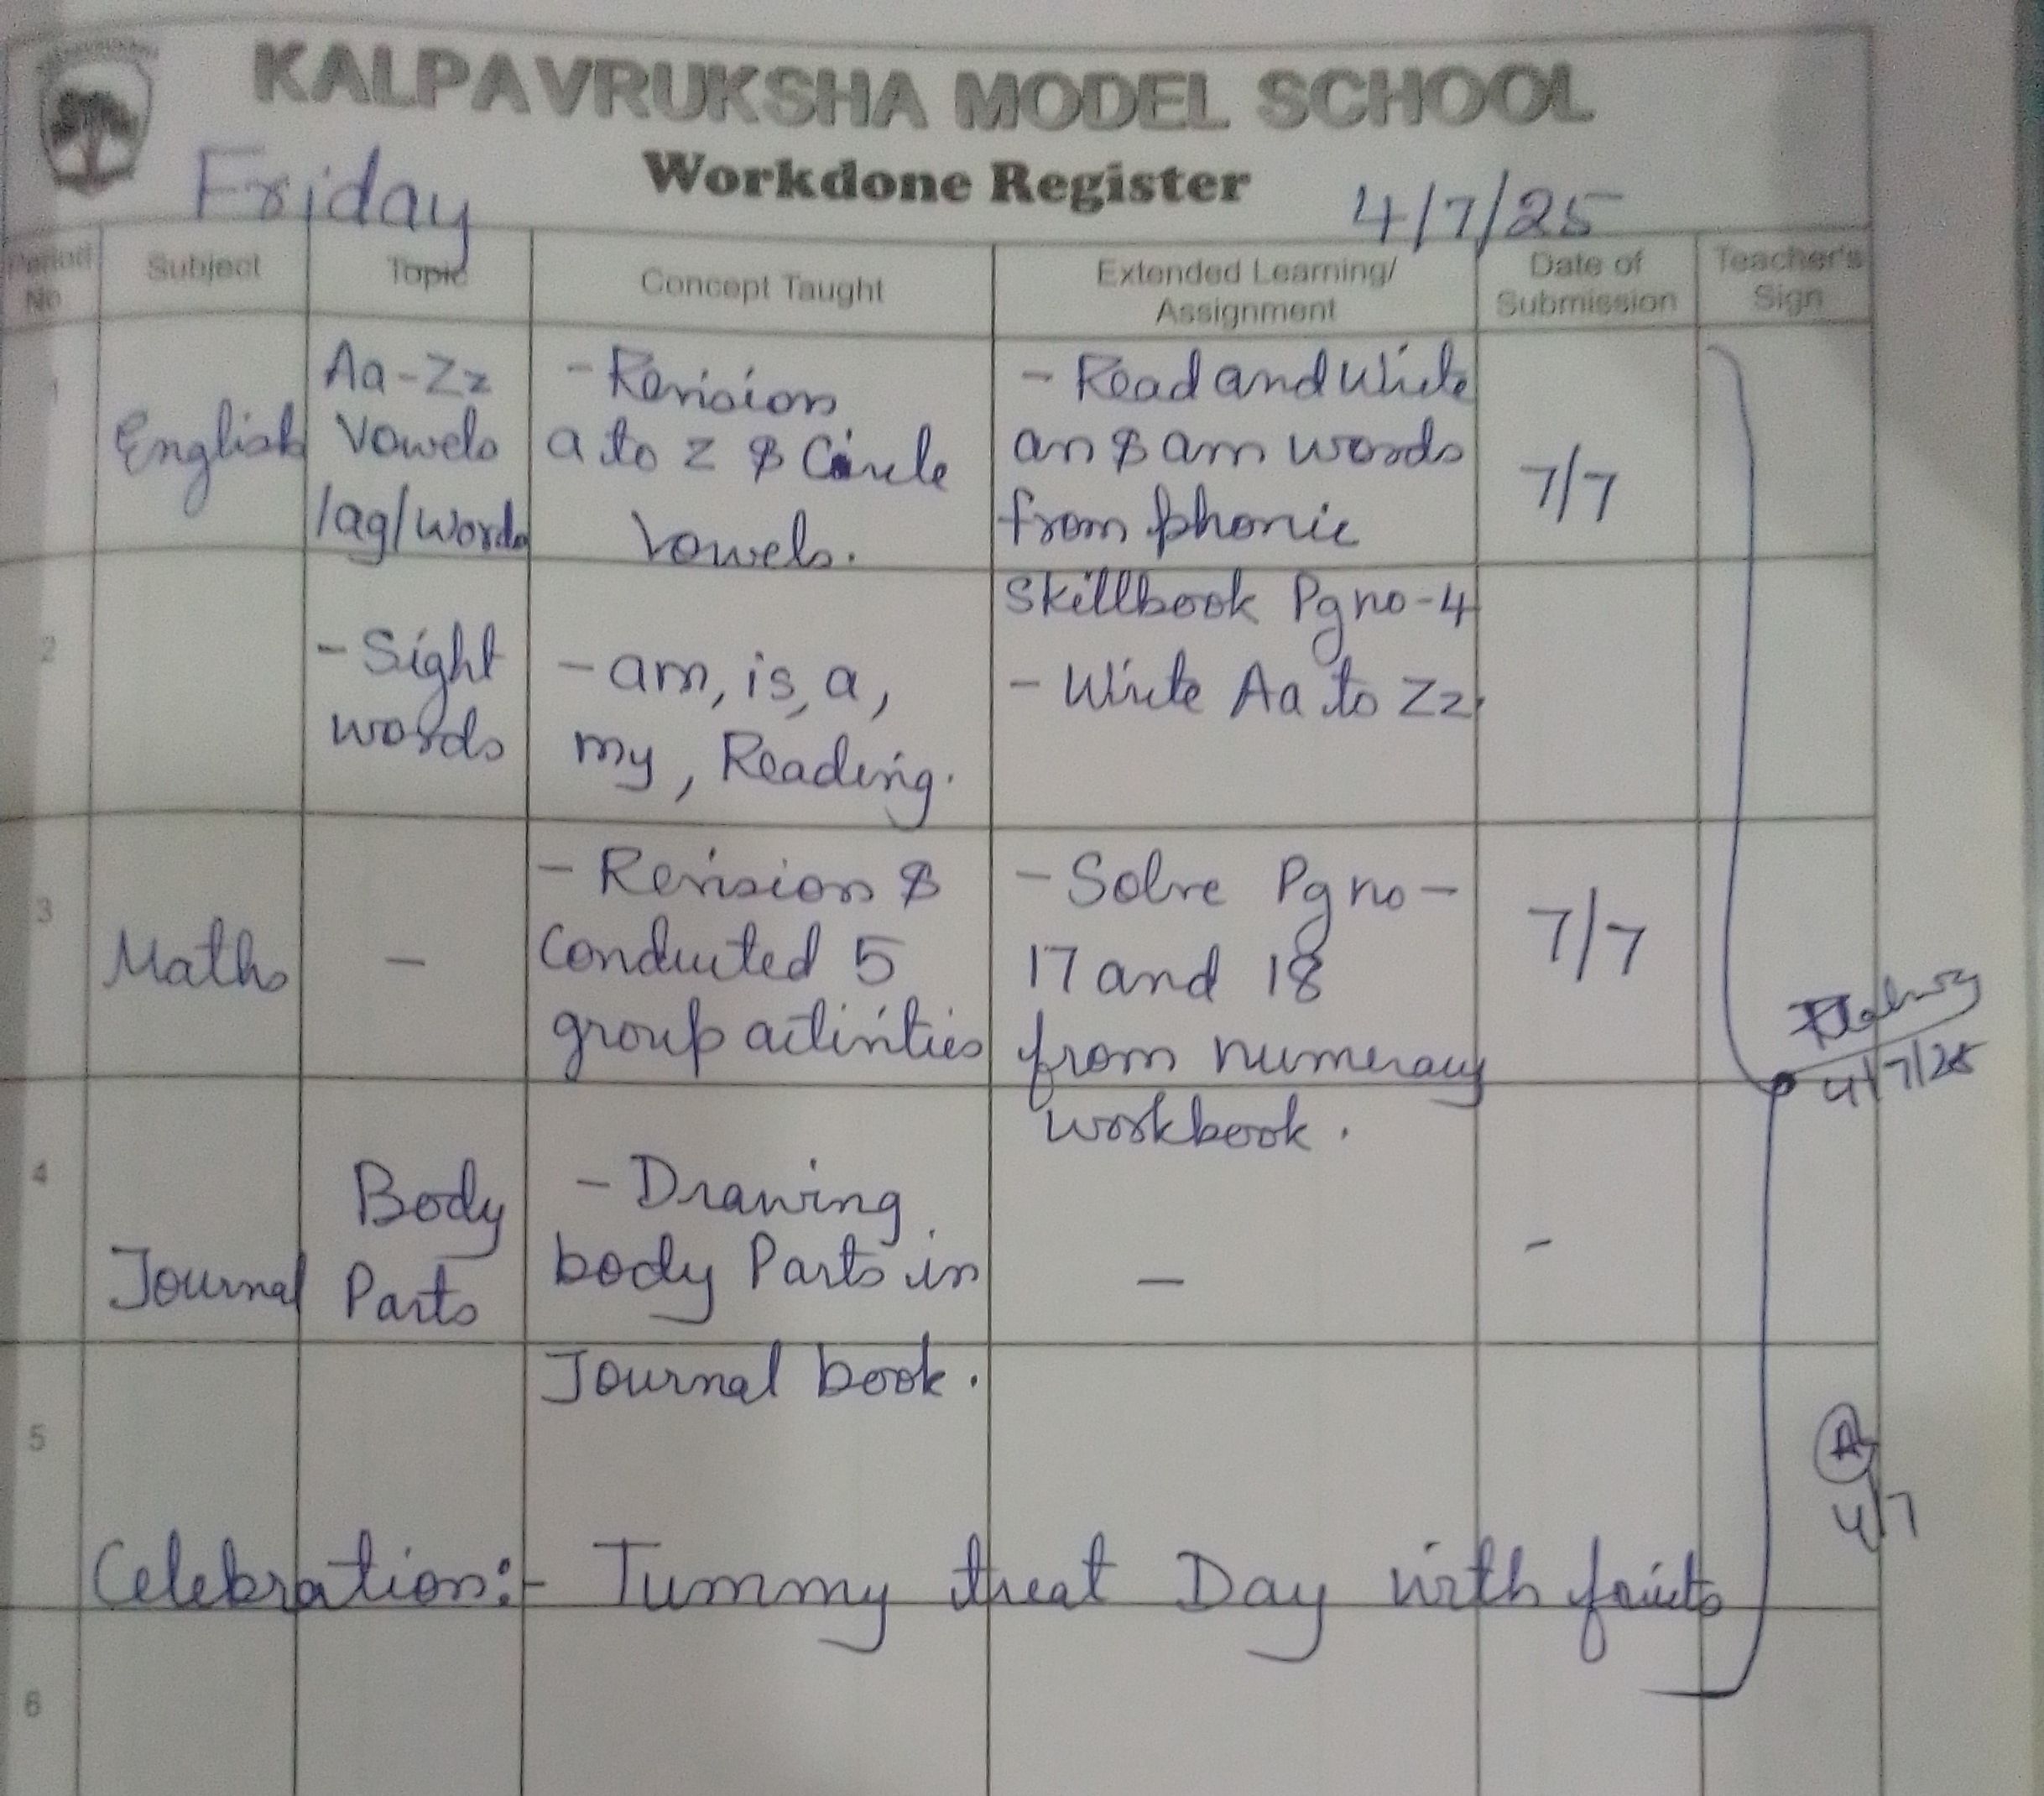 KALPAVRUKSHA MODEL SCHOOL
Workdone Register
Friday
4/7/25
Period No
Subject
Topic
Concept Taught
Extended Learning/
Assignment
Date of
Submission
Teacher's
Sign
1
English
Aa-Zz
Vowels
/ag/words
- Revision
a to z & Circle
Vowels.
- Read and Write
an & am words
from phonic
Skillbook Pg no-4
- Write Aa to Zz
7/7
2
- Sight
words
- am, is, a,
my, Reading.
3
Maths
-
- Revision &
Conducted 5
group activities
- Solve Pg no-
17 and 18
from numeracy
workbook.
7/7
4/7/25
4
Journal
Body
Parts
- Drawing
body Parts in
Journal book.
-
-
5
4/7
Celebration:- Tummy treat Day with fruits
6